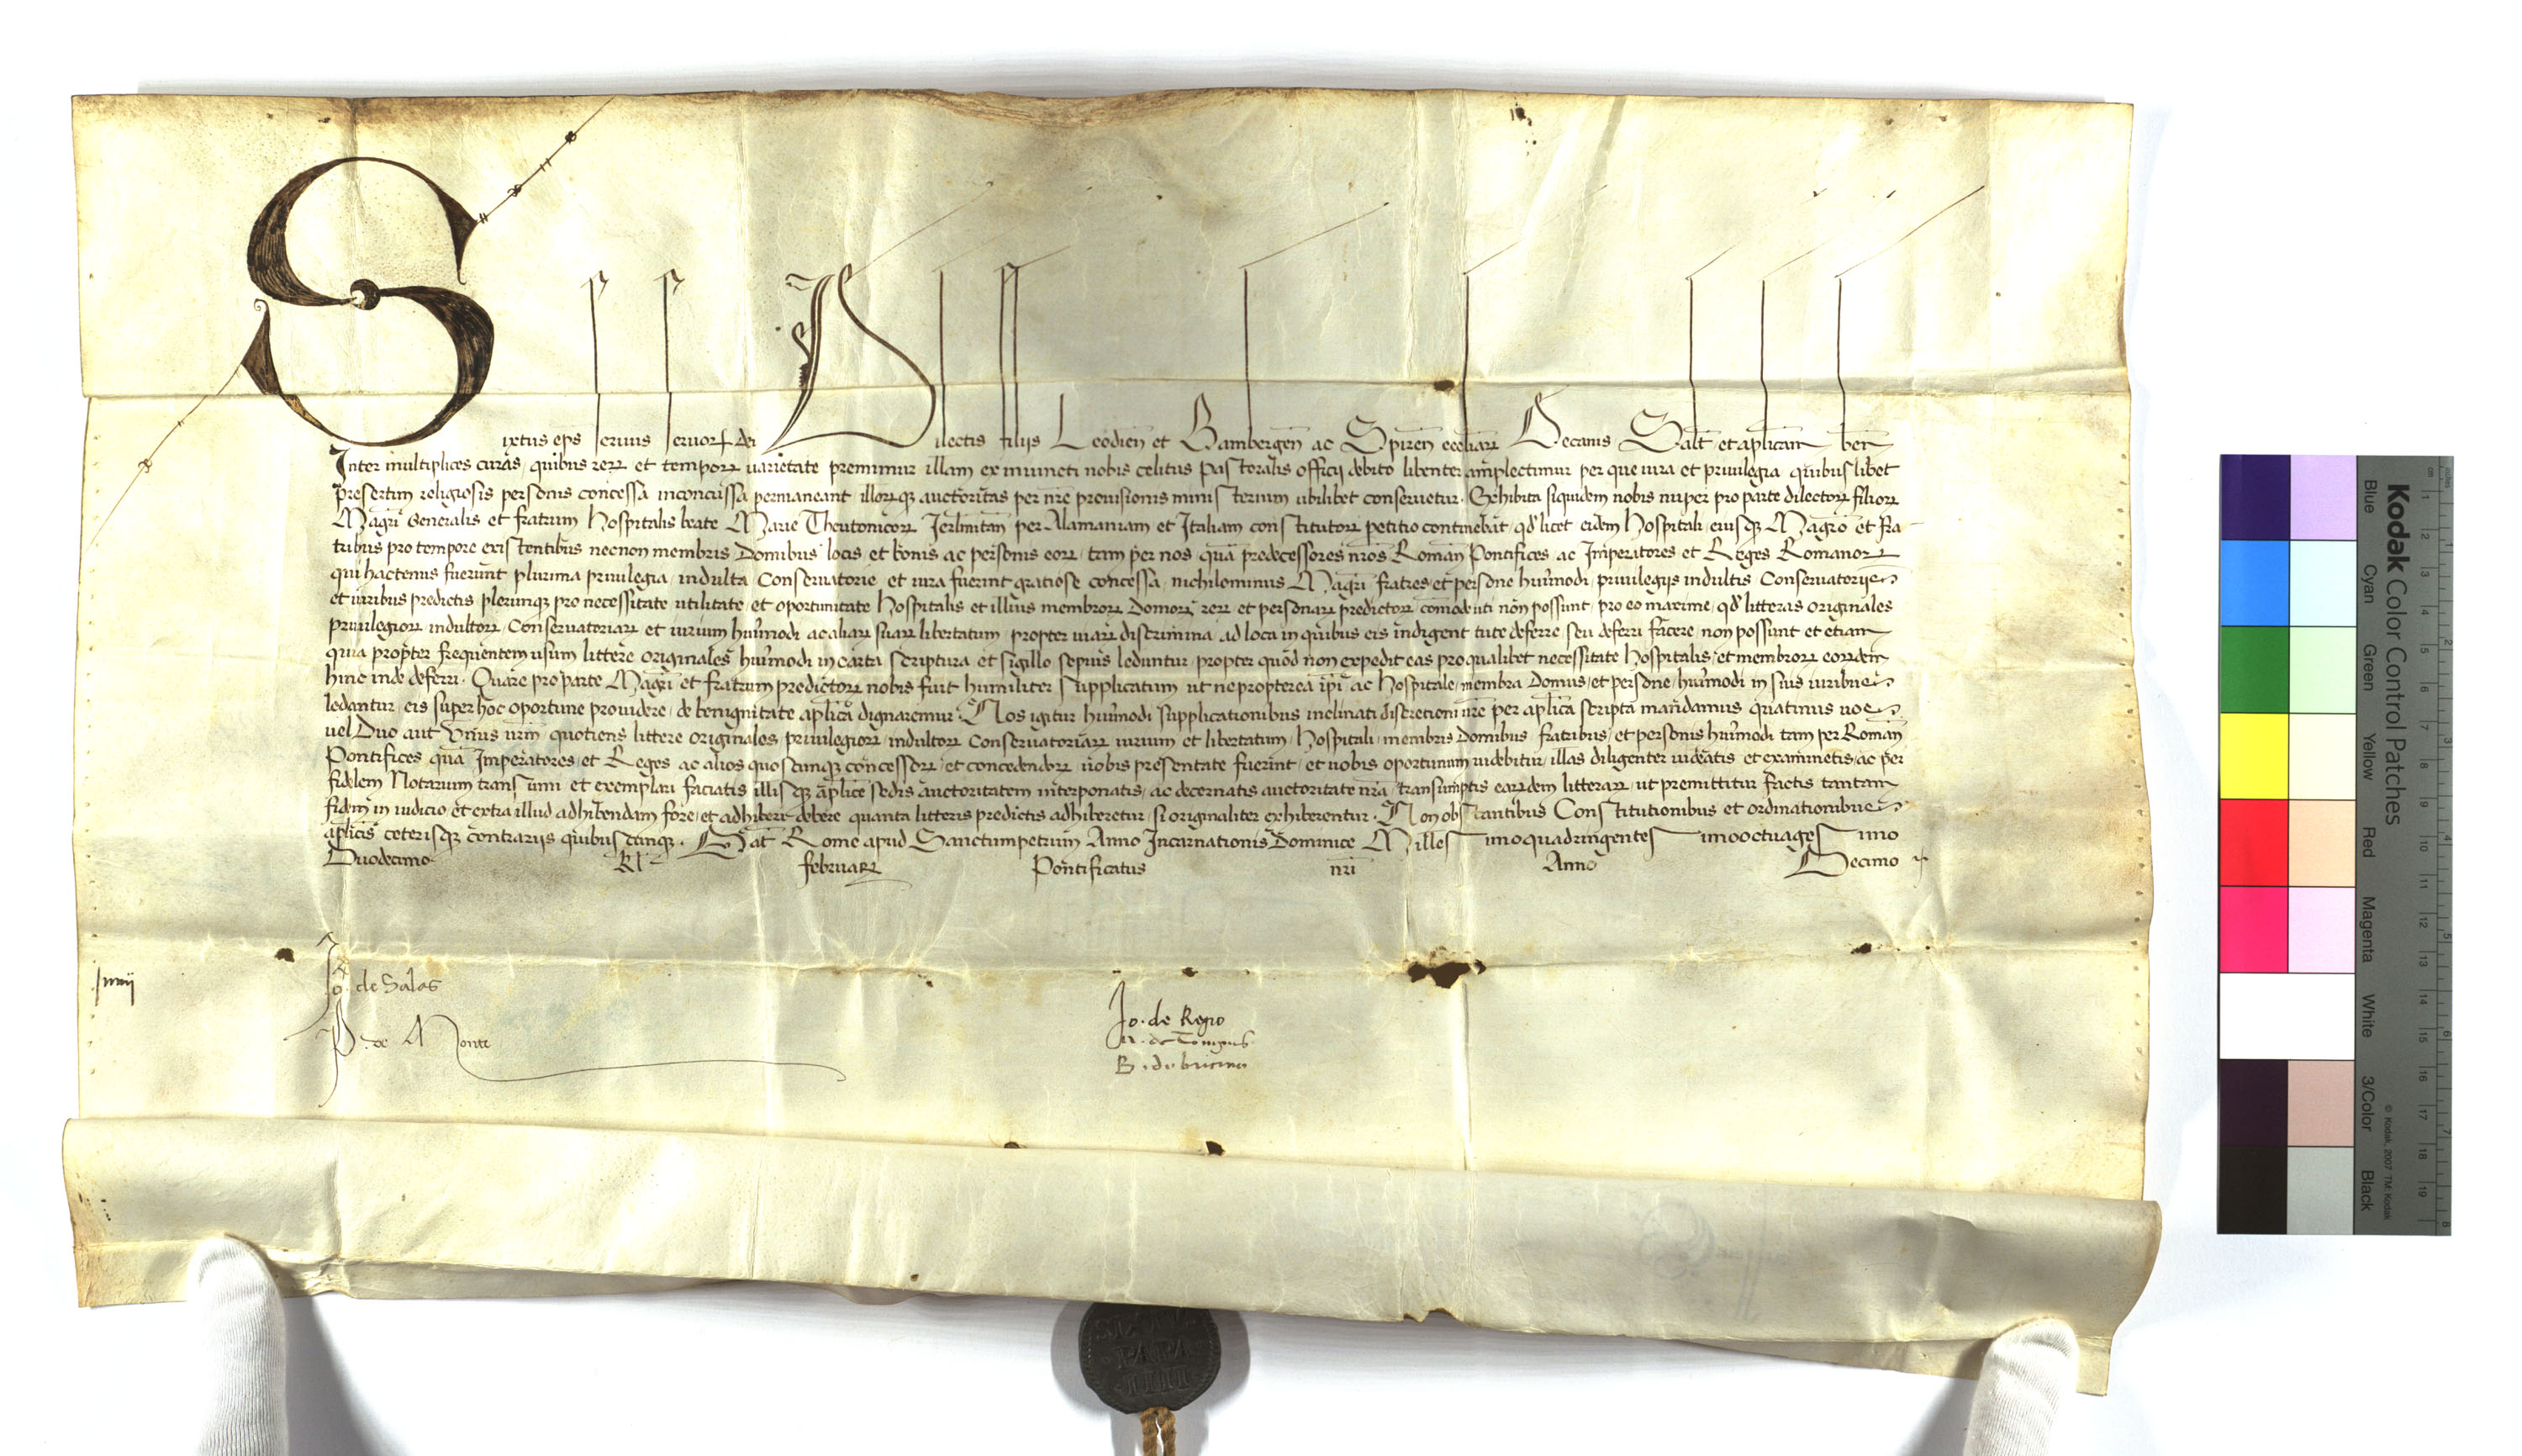 Sixtus eps seruus seruorꝝ dei Dilectis filijs Leodien̄ et Bambergen̄ ac Spiren̄ eccliaꝝ Decanis Salt̄ et aplicam̄ ben̄
Inter multiplices curas, quibus reꝝ et tempoꝝ uarietate premimur illam ex iniuncti nobis celitus pastoralis officij debito libenter amplectimur per que iura et priuilegia quibuslibet
presertim religiosis personis concessa inconcussa permaneant illorꝝqꝫ auctoritas per nr̄e prouisionis ministerium ubilibet conseruetur. Exhibita siquidem nobis nuper pro parte dilectoꝝ filioꝝ
Magri Generalis et fratrum hospitalis beate Marie Theutonicoꝝ Jerlmitan̄ per Alamaniam et Italiam constitutoꝝ petitio continebat, qd' licet eidem hospitali, eiusqꝫ Magro et fra
tribus pro tempore existentibus necnon membris Domibus locis et bonis ac personis eoꝝ, tam per nos quā predecessores nr̄os Roman̄ Pontifices ac Imperatores et Reges Romanoꝝ
qui hactenus fuerunt plurima priuilegia, indulta Conseruatorie et iura fuerint gratiose concessa, nichilominus Magri fratres et persone hmōi, priuilegijs indultis Conseruatorijs
et iuribus predictis plerunqꝫ pro necessitate utilitate et oportunitate hospitalis et illius membroꝝ domoꝝ reꝝ et personaꝝ predictoꝝ comode uti non possunt, pro eo maxime, qd' litteras originales
priuilegioꝝ indultoꝝ Conseruatoriaꝝ et iurium hmōi ac aliaꝝ suaꝝ libertatum propter uiaꝝ discrimina ad loca in quibus eis indigent tute deferre, seu deferri facere non possunt et etiam
quia propter frequentem usum littere originales hmōi in carta scriptura et sigillo sepius leduntur, propter quod non expedit eas pro qualibet necessitate hospitalis et membroꝝ eorundem
hinc inde deferri. Quare pro parte Magri et fratrum predictoꝝ nobis fuit humiliter supplicatum ut ne propterea ip̄i ac hospitale, membra Domus, et persone hmōi in suis iuribus
ledantur, eis super hoc oportune prouidere de benignitate aplica dignaremur. Nos igitur hmōi supplicationibus inclinati discretioni ur̄e per aplica scripta mandamus quatinus uos
uel Duo aut Vnus ur̄m, quotiens littere originales priuilegioꝝ, indultoꝝ Conseruatoriaꝝ iurium et libertatum, hospitali, membris Domibus fratribus, et personis hmōi tam per Roman̄
Pontifices quā Imperatores et Reges ac alios quoscunqꝫ concessoꝝ et concedendoꝝ uobis presentate fuerint, et uobis oportunum uidebitur, illas diligenter uideatis et examinetis, ac per
fidelem Notarium transumi et exemplari faciatis illisqꝫ aplice sedis auctoritatem interponatis, ac decernatis auctoritate nr̄a transumptis earundem litteraꝝ, ut premittitur factis tantam
fidem in iudicio et extra illud adhibendam fore, et adhiberi debere quanta litteris predictis adhiberetur, si originaliter exhiberentur. Non obstantibus Constitutionibus et ordinationibus
aplicis ceterisqꝫ contrarijs quibuscunqꝫ. Dat̄ Rome apud Sanctumpetrum Anno Incarnationis Dominice Millesimoquadringentesimooctuagesimo
Duodecimo Kl̄ februaꝝ Pontificatus nr̄i Anno Decimo
Jo. de Salas
P. de Monte
Jo. de Regio
SIXTVS
PAPA
IIII
Kodak Color Control Patches
Blue Cyan Green Yellow Red Magenta White 3/Color Black
© Kodak, 2007 TM: Kodak